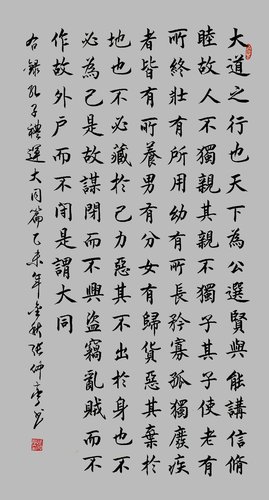 大道之行也天下為公選賢與能講信修
睦故人不獨親其親不獨子其子使老有
所終壯有所用幼有所長矜寡孤獨廢疾
者皆有所養男有分女有歸貨惡其棄於
地也不必藏於己力惡其不出於身也不
必為己是故謀閉而不興盜竊亂賊而不
作故外戶而不閉是謂大同
錄孔子禮運大同篇乙未年金秋張仲亭书